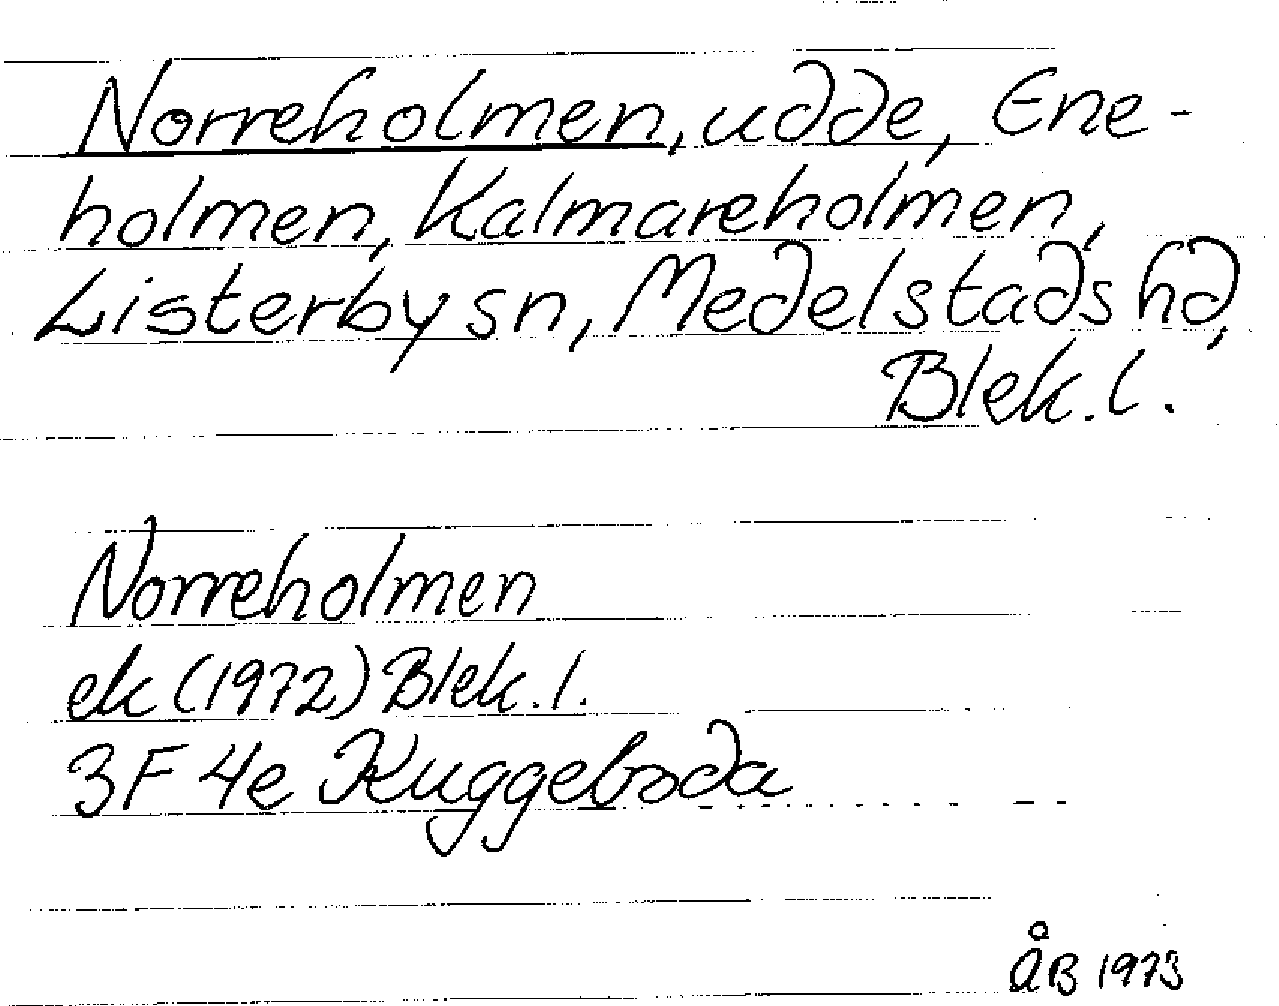 Norreholmen, udde, Ene-
holmen, Kalmareholmen,
Listerby sn, Medelstads hd,
Blek. l.
Norreholmen
ek (1972) Blek. l.
3F 4e Kuggeboda
ÅB 1973